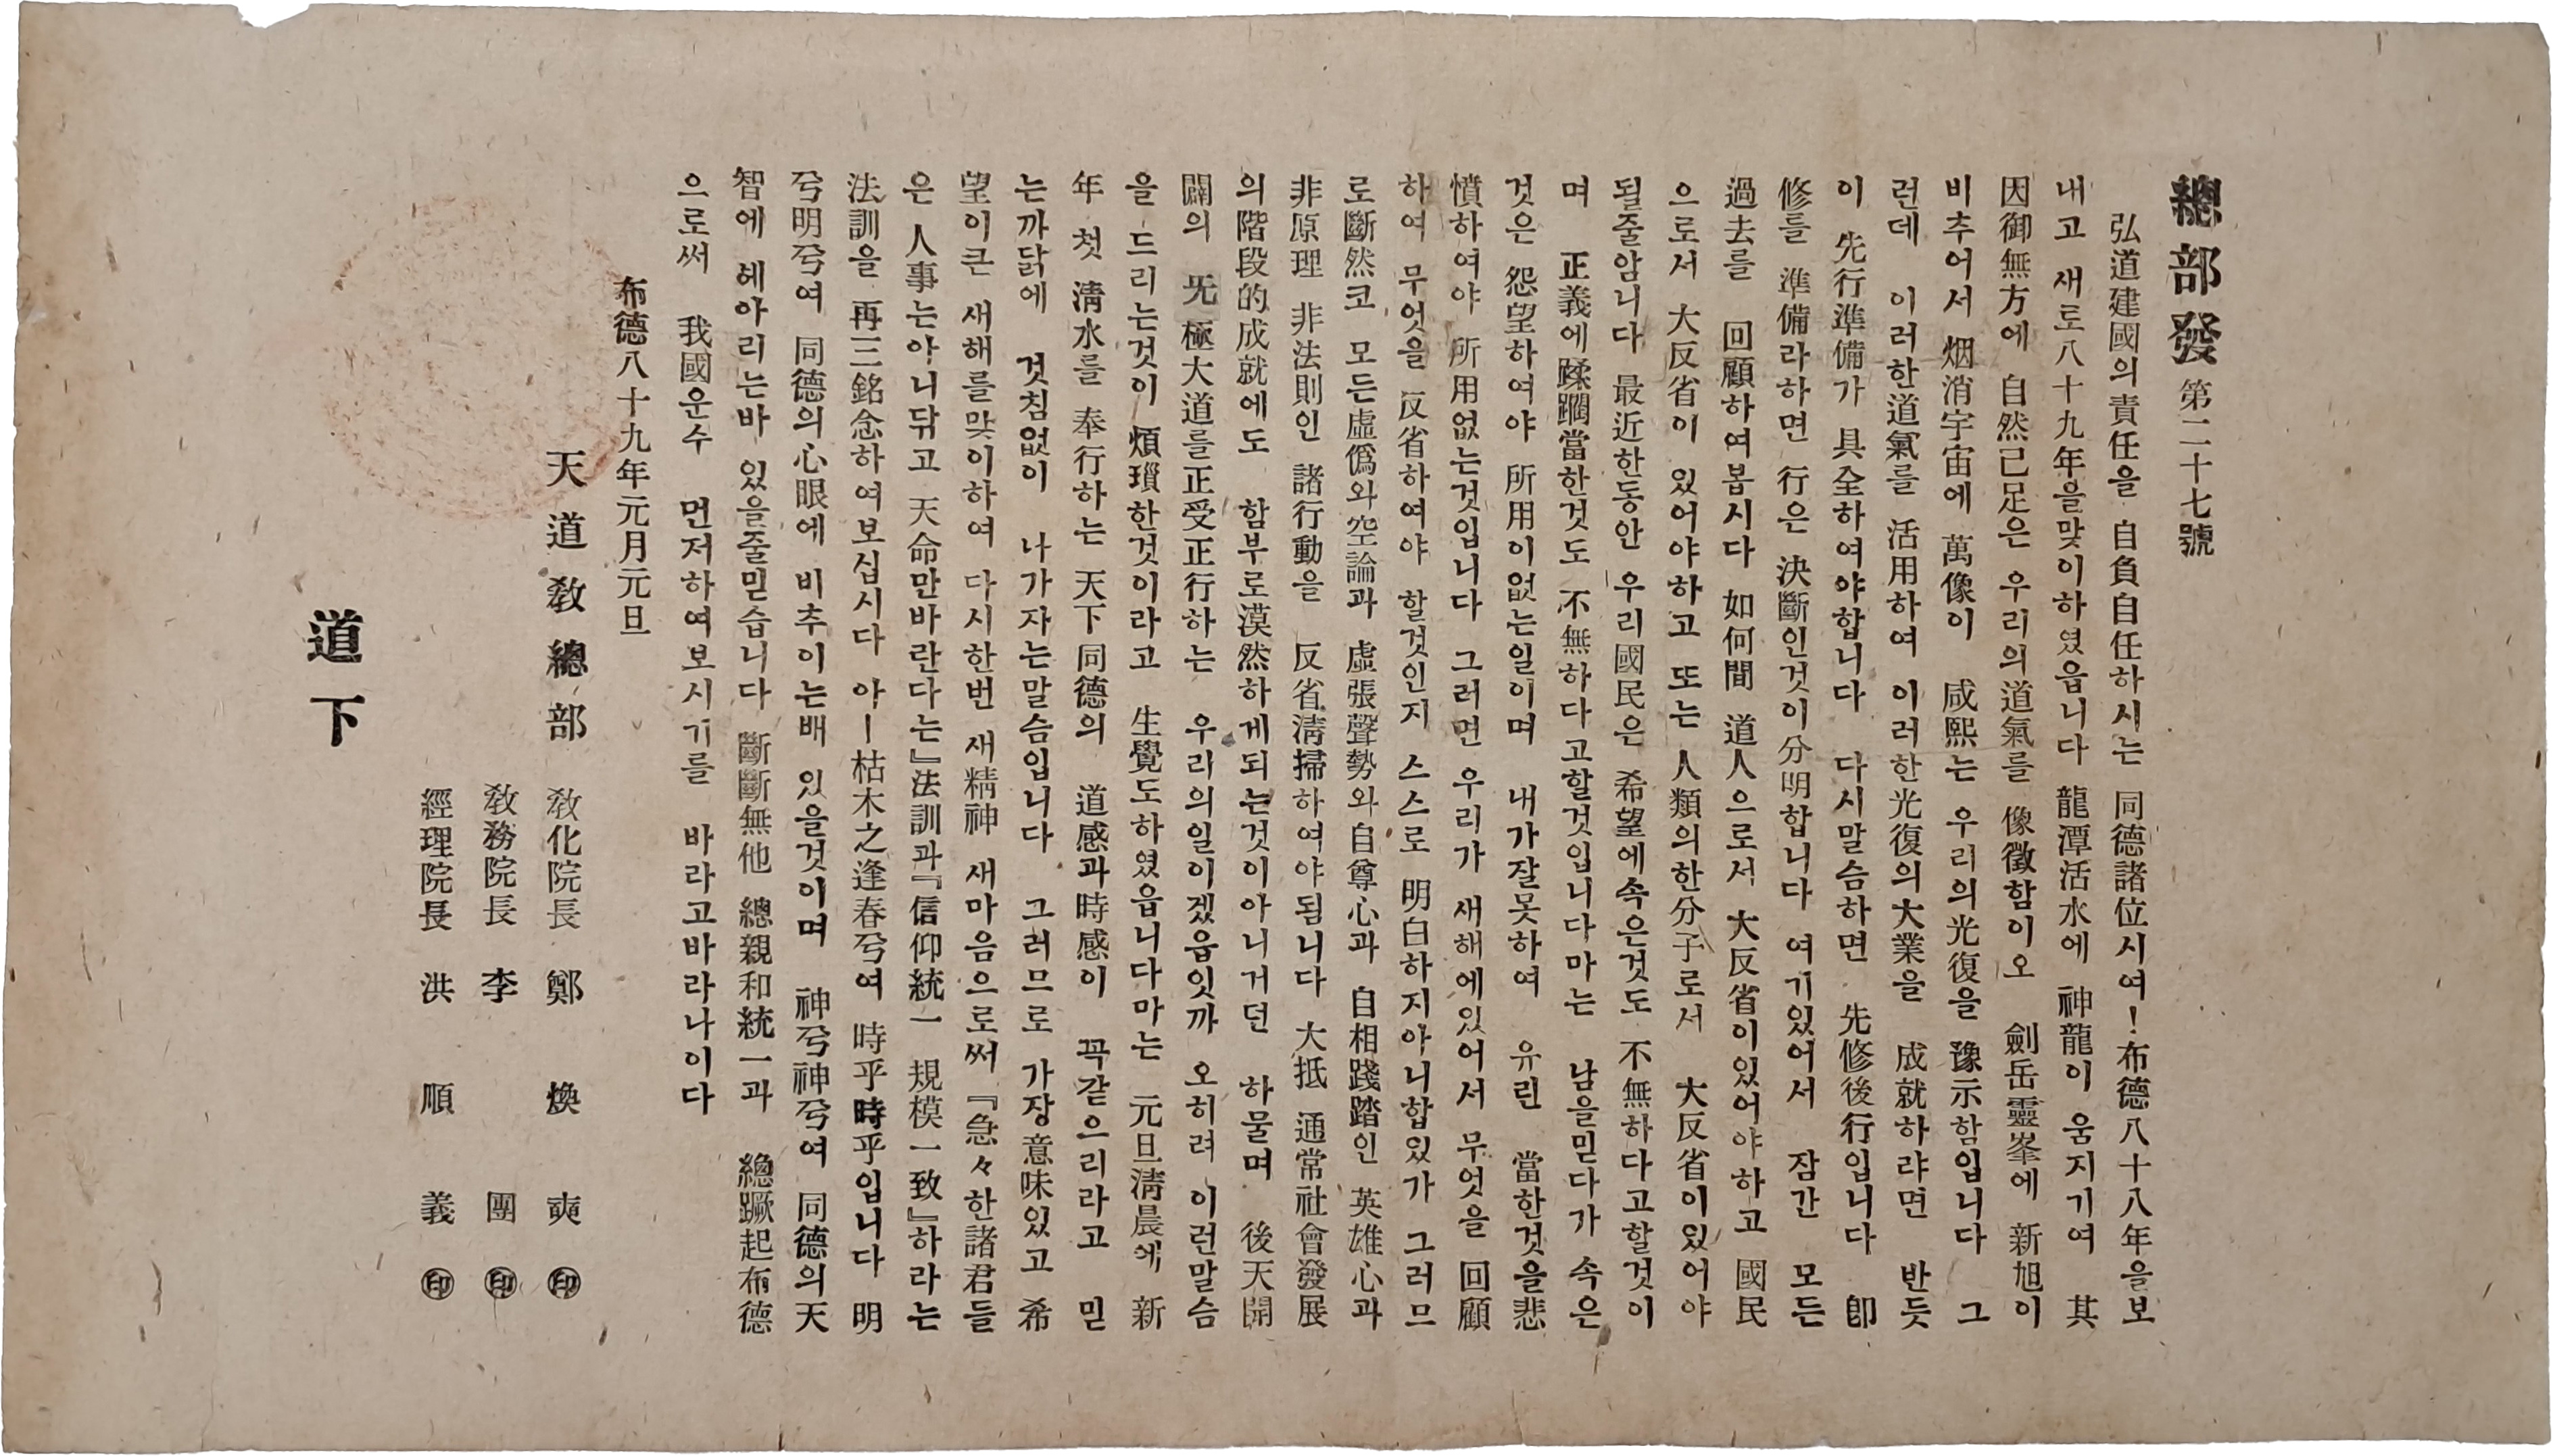 總部發 第二十七號
弘道建國의責任을 自負自任하시는 同德諸位시여！布德八十八年을보
내고 새로八十九年을맞이하였읍니다 龍潭活水에 神龍이 움지기여 其
因御無方에 自然己足은 우리의道氣를 像徵함이오 劍岳靈峯에 新旭이
비추어서 烟消宇宙에 萬像이 咸熙는 우리의光復을 豫示함입니다 그
런데 이러한道氣를 活用하여 이러한光復의大業을 成就하랴면 반듯
이 先行準備가 具全하여야합니다 다시말슴하면 先修後行입니다 卽
修를 準備라하면 行은 決斷인것이分明합니다 여기있어서 잠간 모든
過去를 回顧하여봅시다 如何間 道人으로서 大反省이있어야하고 國民
으로서 大反省이 있어야하고 또는 人類의한分子로서 大反省이있어야
될줄암니다 最近한동안 우리國民은 希望에속은것도 不無하다고할것이
며 正義에蹂躙當한것도 不無하다고할것입니다마는 남을믿다가 속은
것은 怨望하여야 所用이없는일이며 내가잘못하여 유린 當한것을悲
憤하여야 所用없는것입니다 그러면 우리가 새해에있어서 무엇을 回顧
하여 무엇을 反省하여야 할것인지 스스로 明白하지아니합있가 그러므
로斷然코 모든虛僞와空論과 虛張聲勢와自尊心과 自相踐踏인 英雄心과
非原理 非法則인 諸行動을 反省淸掃하여야됩니다 大抵 通常社會發展
의階段的成就에도 함부로漠然하게되는것이아니거던 하물며 後天開
闢의 旡極大道를正受正行하는 우리의일이겠읍잇까 오히려 이런말슴
을 드리는것이 煩瑣한것이라고 生覺도하였읍니다마는 元旦淸晨에 新
年 첫 淸水를 奉行하는 天下同德의 道感과時感이 꼭같으리라고 믿
는까닭에 것침없이 나가자는말슴입니다 그러므로 가장意味있고 希
望이큰 새해를맞이하여 다시한번 새精神 새마음으로써『急々한諸君들
은 人事는아니닦고 天命만바란다는』法訓과『信仰統一 規模一致』하라는
法訓을 再三銘念하여보십시다 아ー枯木之逢春兮여 時乎時乎입니다 明
兮明兮여 同德의心眼에 비추이는배 있을것이며 神兮神兮여 同德의天
智에 헤아리는바 있을줄믿습니다 斷斷無他 總親和統一과 總蹶起布德
으로써 我國운수 먼저하여보시기를 바라고바라나이다
布德八十九年元月元旦
天道敎總部 敎化院長 鄭煥奭 ㊞
敎務院長 李團 ㊞
經理院長 洪順義 ㊞
道下